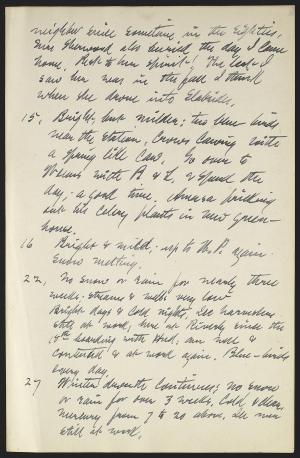 neighbor since sometime in the Eighties.
Mrs Sherwood also buried the day I came
home. Rest to her spirit! The last I
saw her was in the fall I think
when she drove into Slabsides.
15, Bright, but milder; two blue-birds
near the station, Crows Cawing with
a Spring like Caw. Go over to
with A & L, & spend the
day,- a good time. Amasa pricking
out his Celery plants in new Green-
house.
16 Bright & mild,- up to W.P. again.
Snow melting.
22, No snow or rain for nearly three
weeks; streams & wells very low
Bright days & Cold nights, Ice harvesters
still at work, here at Riverby since the
5th boarding with Hud; am well &
contented & at work again. Blue-birds
every day.
27 Winter drouth continues; no snow
or rain for over 3 weeks. Cold & clear,
mercury from 7 to 20 above. Ice men
still at work.